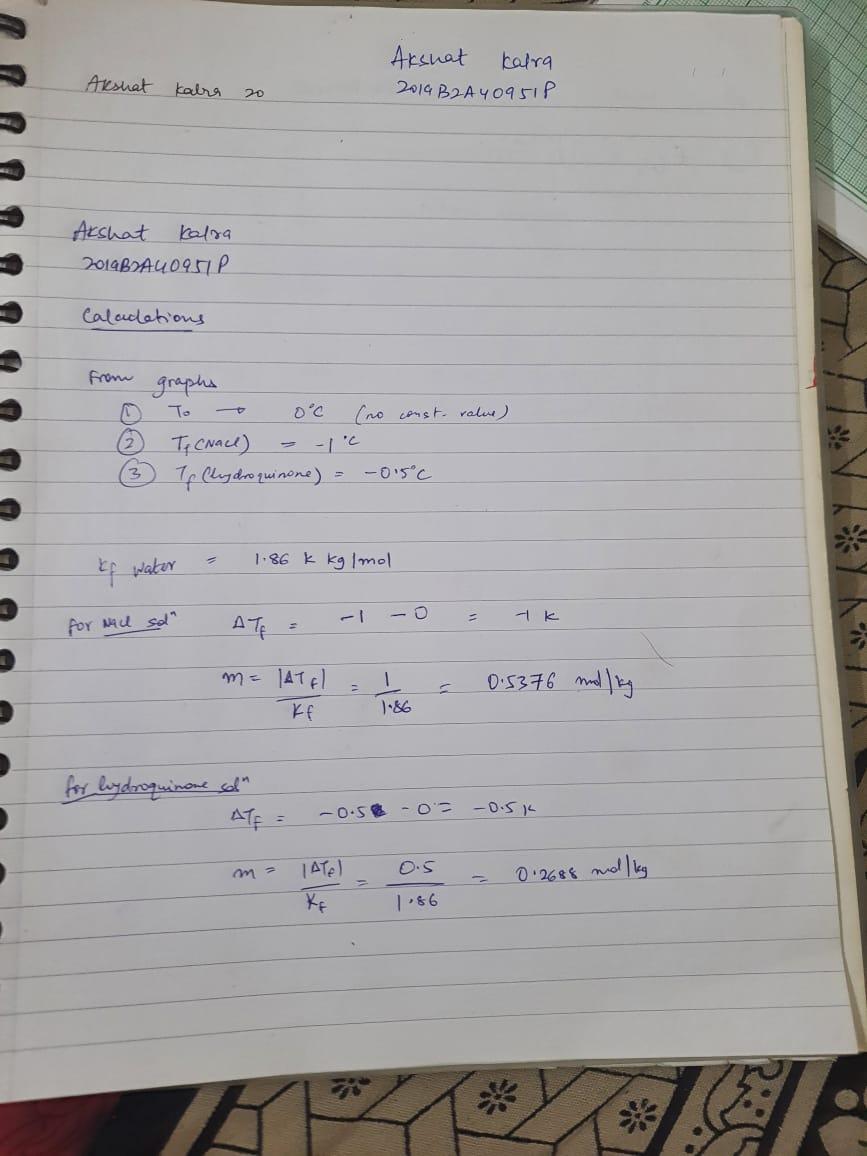 Akshat Kalra
2019B2A40951P
Akshat Kalra 20
Akshat Kalra
2019B2A40951P
Calculations
From graphs
① To → 0°C (no const. value)
② Tf (NaCl) = -1°C
③ Tf (hydroquinone) = -0.5°C
Kf water = 1.86 K kg/mol
for NaCl solⁿ ΔTf = -1 - 0 = -1 K
m = |ΔTf| / Kf = 1 / 1.86 = 0.5376 mol/kg
for hydroquinone solⁿ
ΔTf = -0.5 - 0 = -0.5 K
m = |ΔTf| / Kf = 0.5 / 1.86 = 0.2688 mol/kg